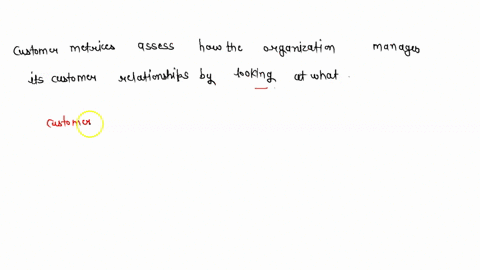 Customer metrices assess how the organization manages
its customer relationships by looking at what.
customer